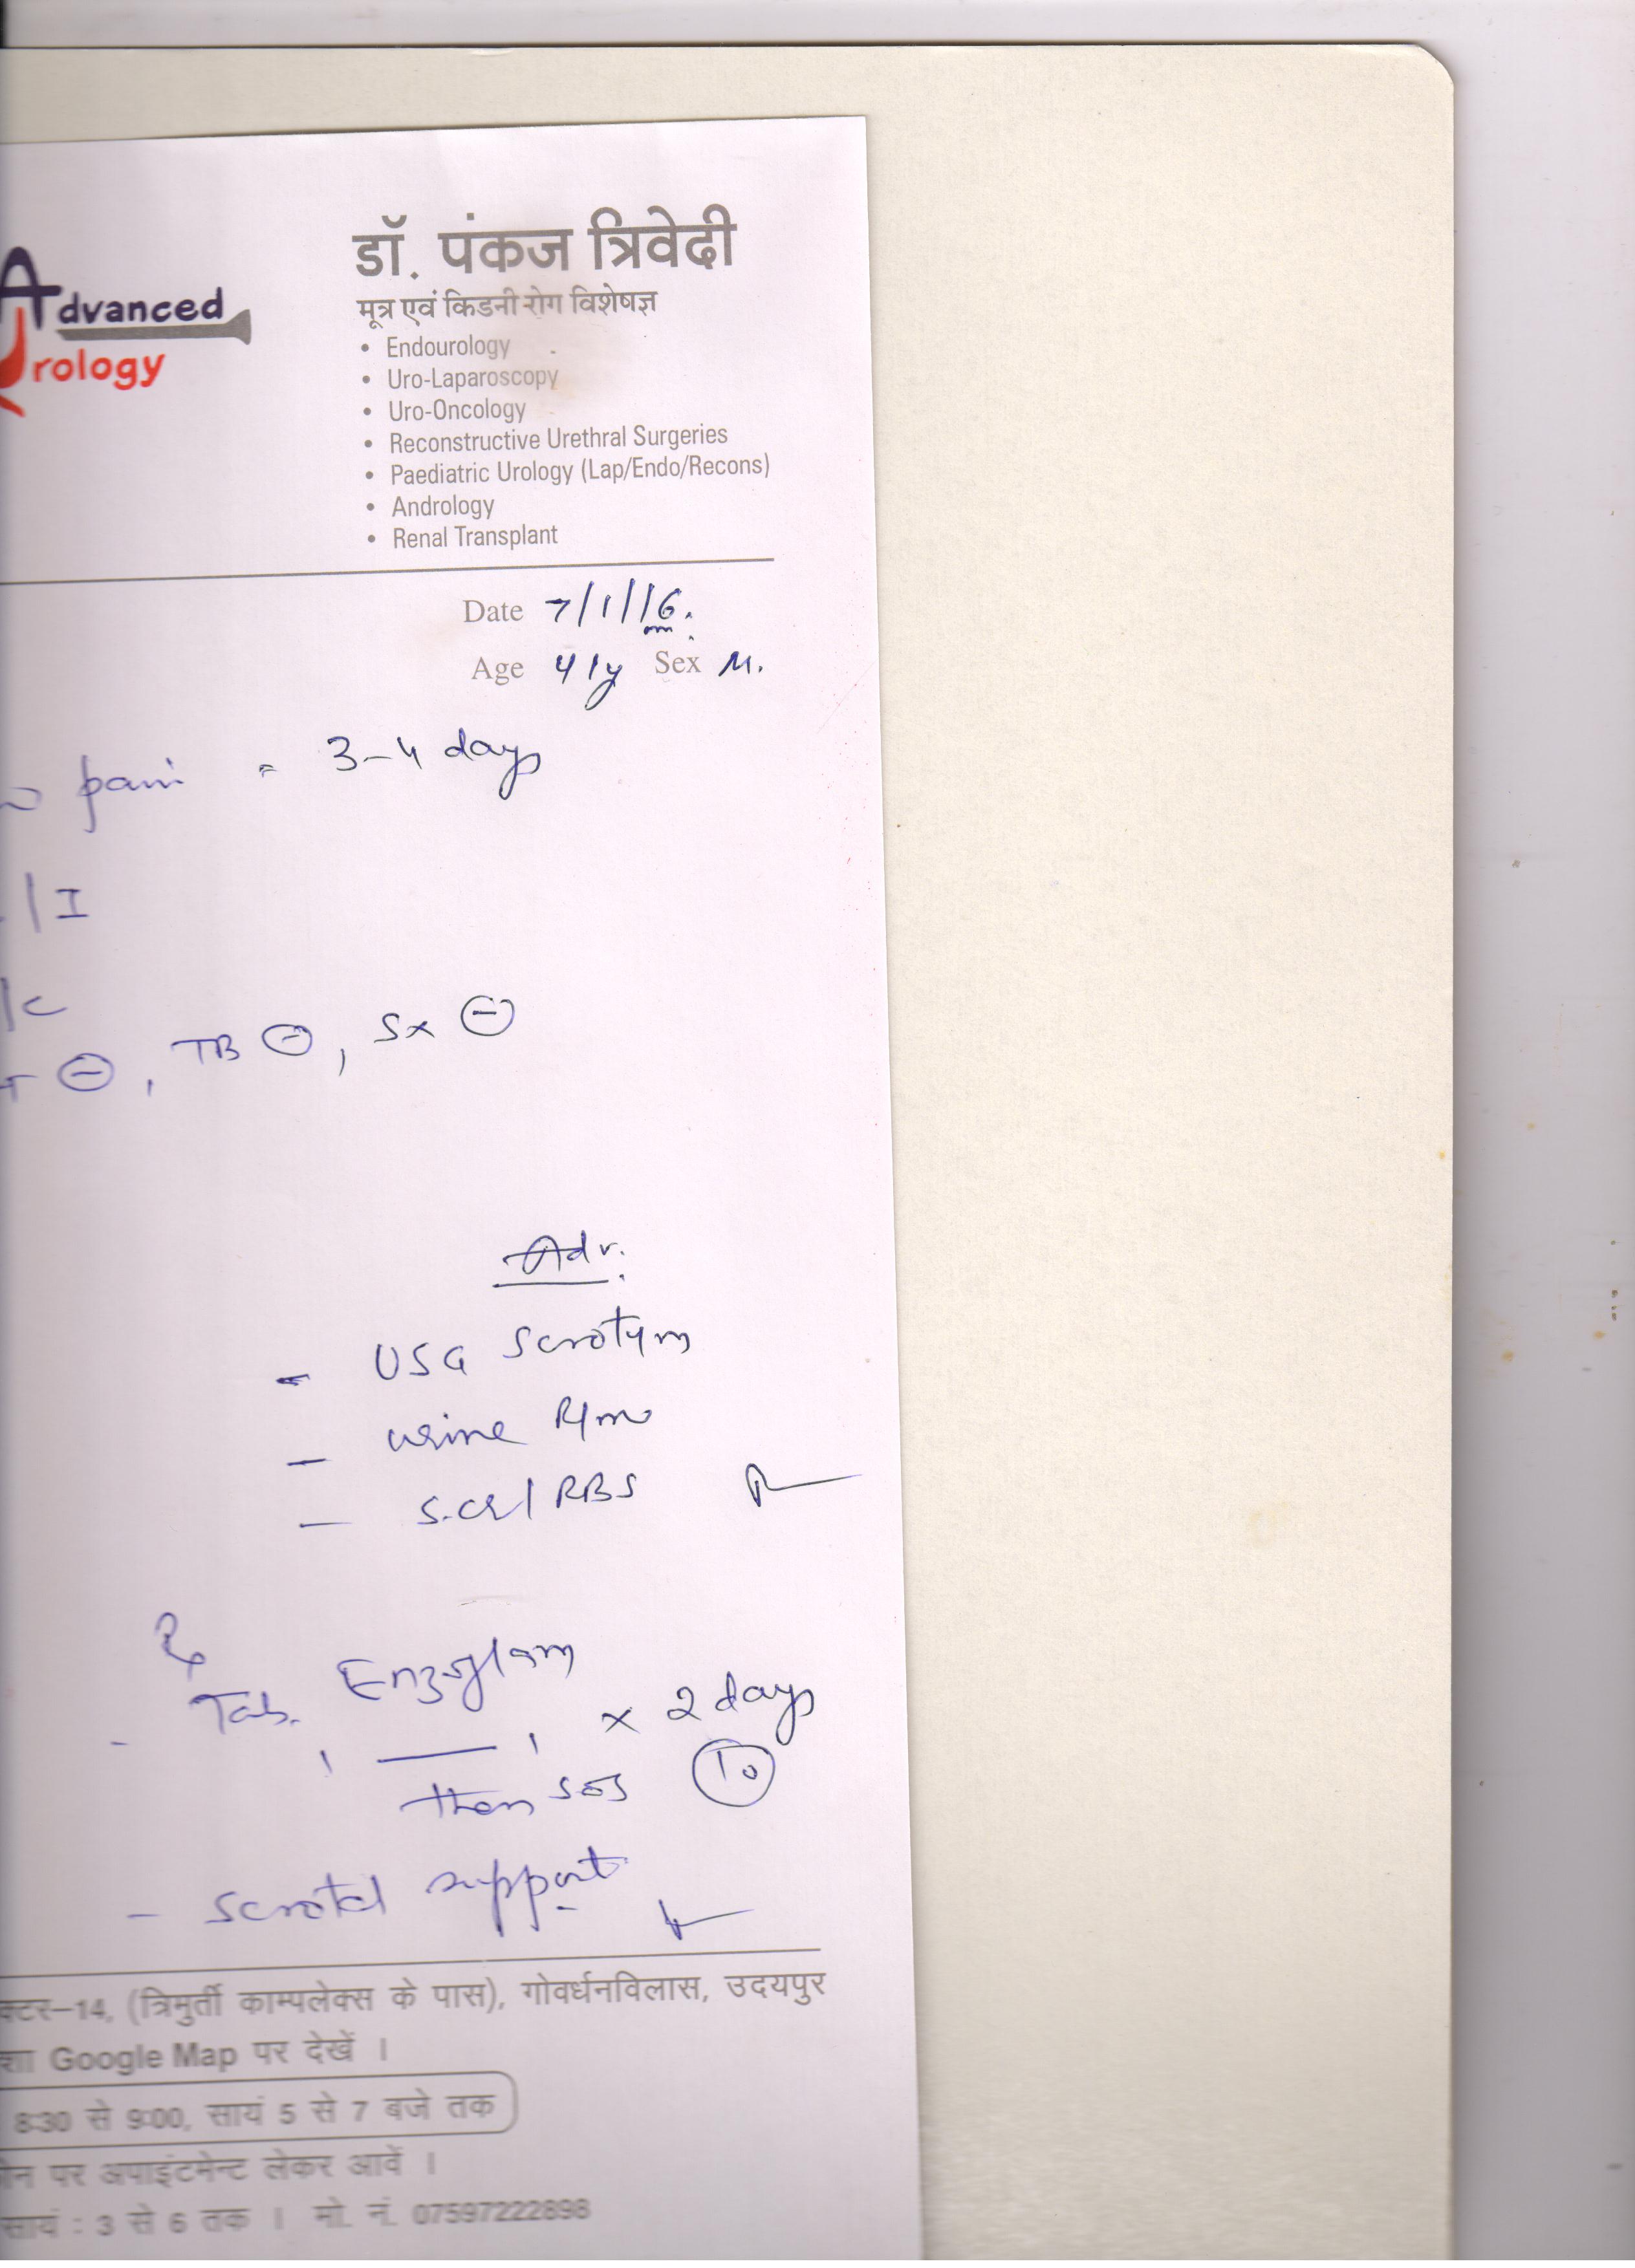 डॉ. पंकज त्रिवेदी
मूत्र एवं किडनी रोग विशेषज्ञ
Advanced
Urology
• Endourology
• Uro-Laparoscopy
• Uro-Oncology
• Reconstructive Urethral Surgeries
• Paediatric Urology (Lap/Endo/Recons)
• Andrology
• Renal Transplant
Date 7/1/16.
Age 41y Sex M.
pain = 3-4 days
/I
/c
T ⊖, TB ⊖, Sx ⊖
Adv.
- USG Scrotum
- urine R/m
- S.cr/RBS
Rx
- Tab. Enzoflam
1 — 1 x 2 days
then sos
- scrotal support
क्टर–14, (त्रिमुर्ती काम्पलेक्स के पास), गोवर्धनविलास, उदयपुर
शा Google Map पर देखें ।
8:30 से 9:00, सायं 5 से 7 बजे तक
न पर अपाइंटमेन्ट लेकर आवें ।
सायं : 3 से 6 तक । मो. नं. 07597222898